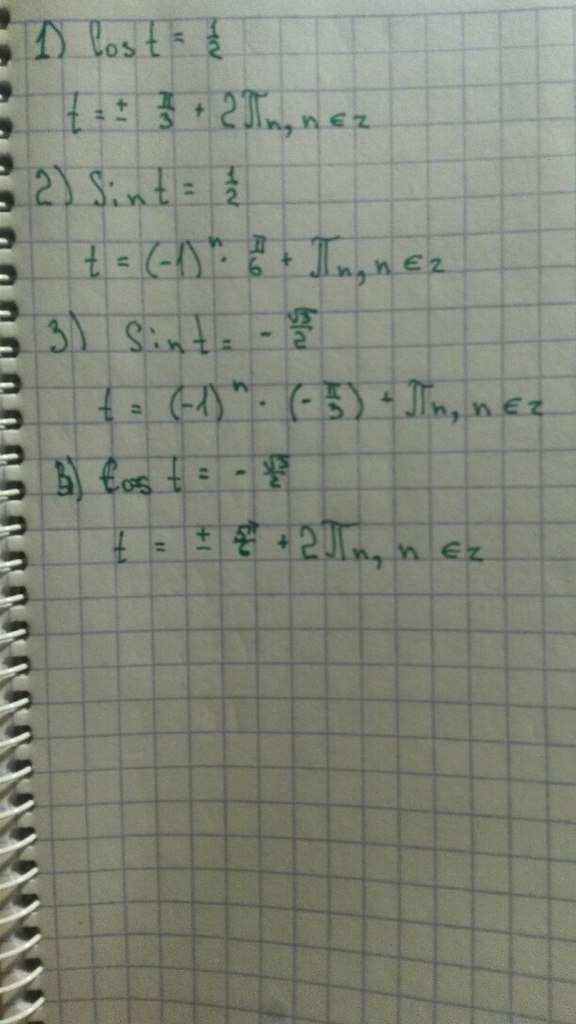 1) Cos t = 1/2
t = ± π/3 + 2πn, n ∈ z
2) Sin t = 1/2
t = (-1)^n · π/6 + πn, n ∈ z
3) Sin t = - √3/2
t = (-1)^n · (- π/3) + πn, n ∈ z
Cos t = - √3/2
t = ± 5π/6 + 2πn, n ∈ z